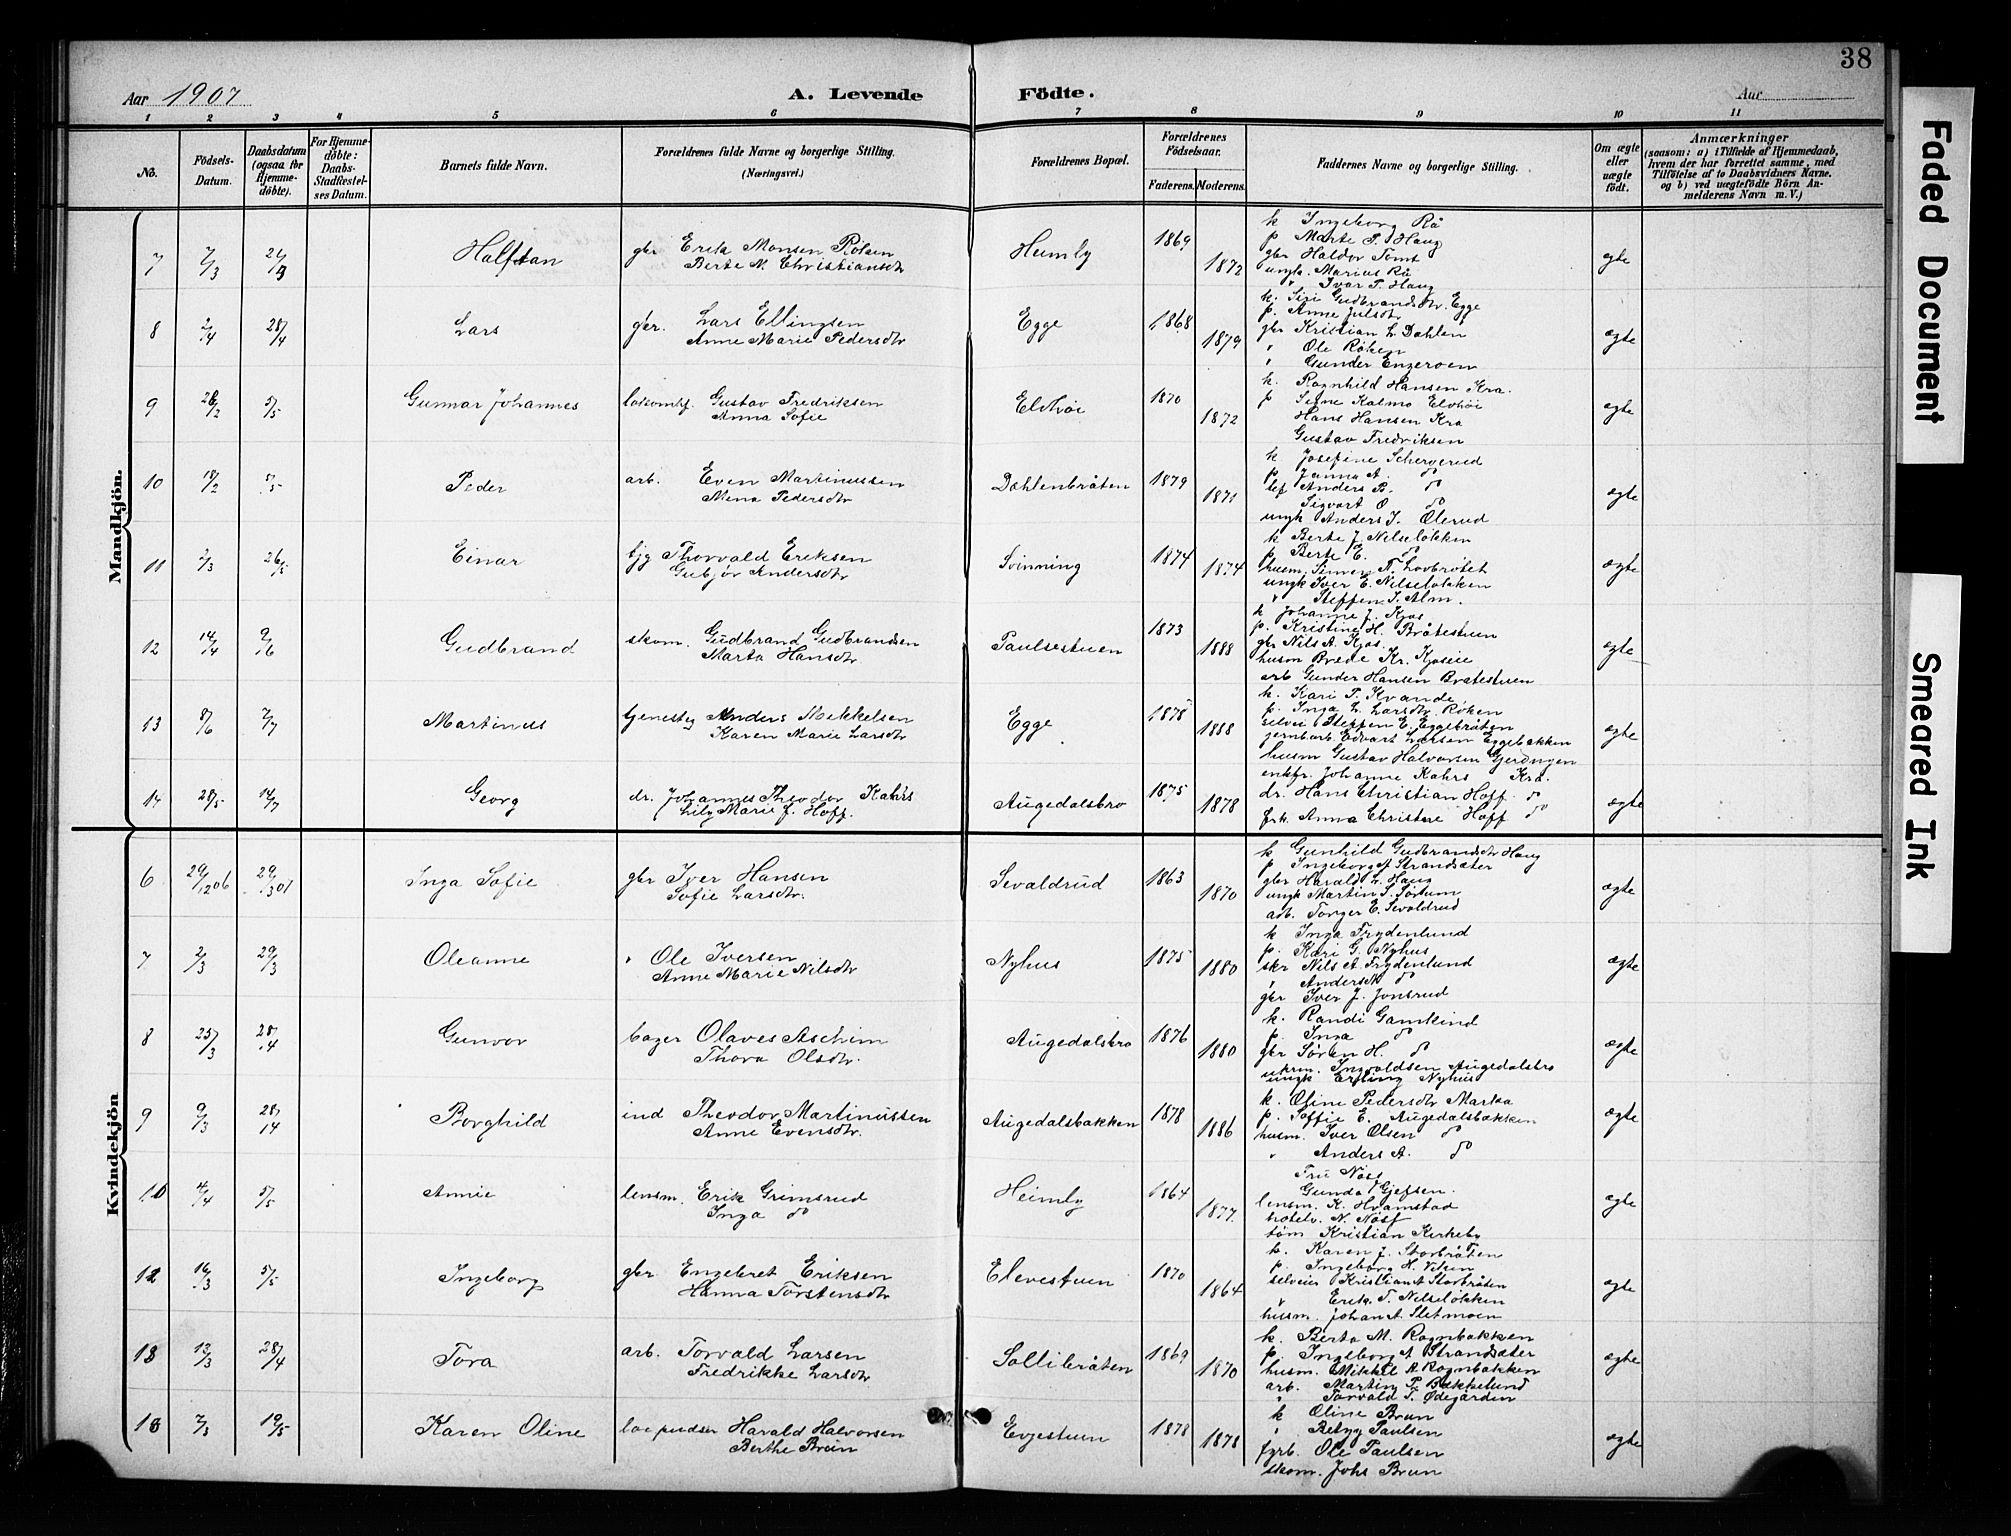 38
Aar 1907
A. Levende Födte.
Aar
1 2 3 4 5 6 7 8 9 10 11
No.
Födsels-
Datum.
Daabsdatum
(ogsaa for
Hjemme-
döbte).
For Hjemme-
döbte:
Daabs-
Stadfestel-
ses Datum.
Barnets fulde Navn.
Forældrenes fulde Navne og borgerlige Stilling.
(Næringsvei.)
Forældrenes Bopæl.
Forældrenes
Födselsaar.
Faderens. Moderens.
Faddernes Navne og borgerlige Stilling.
Om ægte
eller
uægte
födt.
Anmærkninger
(saasom: a) i Tilfælde af Hjemmedaab,
hvem der har forrettet samme, med
Tilföielse af to Daabsvidners Navne.
og b) ved uægtefödte Börn An-
melderens Navn m. V.)
Mandkjön.
7 Halftan
gbr Erik Monsen
Berte N. Christiansdtr
Heimly 1869 1872
k Ingeborg Rå
p Marte P. Haug
gbr Haldor Tomt
ungk. Marius Rå
" Ivar P. Haug
egte
8 2/4 28/4 Lars
gbr. Lars Ellingsen
Anne Marie Pedersdtr
Egge 1868 1879
k. Siri Gudbrandsdtr. Egge
p. Anne Julsdtr
gbr Kristian L. Dahlen
" Ole Røken
" Gunder Engeroen
ægte
9 28/2 5/5 Gunnar Johannes
Gustav Fredriksen
Anna Sofie
Elvhøi 1870 1872
k. Ragnhild Hansen Kra.
p Signe Kalmo Elvhøi
Hans Hansen Kra
Gustav Fredriksen
ægte
10 18/2 5/5 Peder
arb. Even Martinussen
Mena Pedersdtr
Dahlenbråten 1879 1871
k Josefine
p Janna A. do
Anders P. do
Sigvart O do
ungk Anders J. Ølerud
ægte
11 2/3 26/5 Einar
Thorvald Eriksen
Gubjør Andersdtr
Svinning 1874 1874
k Berte J. Nilseløkken
p Berte E. do
husm. Simen T. Lovbrøtet
ungk Iver E. Nilseløkken
" Steffen J. Alm.
ægte
12 14/4 9/6 Gudbrand
skom. Gudbrand Gudbrandsen
Marta Hansdtr
Paulsestuen 1873 1888
k Johanne J. Kjos
p. Kristine H. Bråtestuen
gbr Nils A. Kjos
husm Brede Kr. Kjoseie
arb Gunder Hansen Bråtestuen
ægte
13 8/6 7/7 Martinus
Anders Mikkelsen
Karen Marie Larsdtr
Egge 1878 1888
k. Kari P. Kvande
p. Inga L. Larsdtr. Røken
selvei Steffen E. Eggebråten
jernbarb. Edvart Larsen Eggebakken
husm Gustav Halvorsen Gjerdingen
ægte
14 28/5 14/7 Georg
dr. Johannes Theodor Kahrs
Lily Marie J. Hoff.
Augedalsbro 1875 1878
enkfr. Johanne Kahrs Kra.
dr. Hans Christian Hoff do
frk. Anna Christine Hoff do
ægte
Kvindekjön
6 29/12 06 29/3 07 Inga Sofie
gbr Iver Hansen
Sofie Larsdtr.
Sevaldrud 1863 1870
k Gunhild Gudbrandsdtr Haug
p Ingeborg A Strandsæter
gbr Harald L. Haug
ungk Martin S. Sørtum
arb. Torger E. Sevaldrud
ægte
7 2/3 29/3 Oleanne
" Ole Iversen
Anne Marie Nilsdtr
Nyhus 1875 1880
k Inga Frydenlund
p. Kari G. Nyhus
skr Nils A. Frydenlund
" Anders do
gbr Iver J. Jonsrud
ægte
8 25/3 28/4 Gunvor
bager Olaves Aschim
Thora Olsdtr.
Augedalsbro 1876 1880
k. Randi Gamkind
p. Inga do
gbr Søren H. do
Ingvoldsen Augedalsbro
ungk Erling Nyhus
ægte
9 9/3 28/4 Borghild
ind Theodor Martinussen
Anne Evensdtr.
Augedalsbakken 1878 1886
k. Oline Pedersdtr Marka
p. Soffie E. Augedalsbakken
husm. Iver Olsen do
" Anders A. do
ægte
10 4/4 5/5 Annie
lensm. Erik Grimsrud
Inga do
Heimly 1864 1877.
Fru Nøst
Gunda Gjefsen.
lensm. K. Hvamstad
hotelv. N. Nøst
tøm Kristian Kirkeby
ægte
12 16/3 5/5 Ingeborg
gbr Engebret Eriksen
Hanna Torstensdtr
Elevestuen 1870 1864
k. Karen J. Storbråten
p. Ingeborg H. Viken
selveier Kristian A Storbråten
" Erik T. Nilseløkken
husm. Johan A. Sletmoen
ægte
13 13/3 28/4 Tora
arb. Torvald Larsen
Fredrikke Larsdtr
Sollibråten 1869 1870
k. Berta M. Rognbakken
p. Ingeborg A Strandsæter
husm. Mikkel A Rognbakken
arb. Martin P. Bakkelund
" Torvald T. Ødegården
ægte
18 7/3 19/5 Karen Oline
Harald Halvorsen
Berthe Brun
Evjestuen 1878 1878
k Oline Brun
" Betzy Paulsen
fyrb. Ole Paulsen
skom. Johs Brun
ægte
Faded Document
Smeared Ink